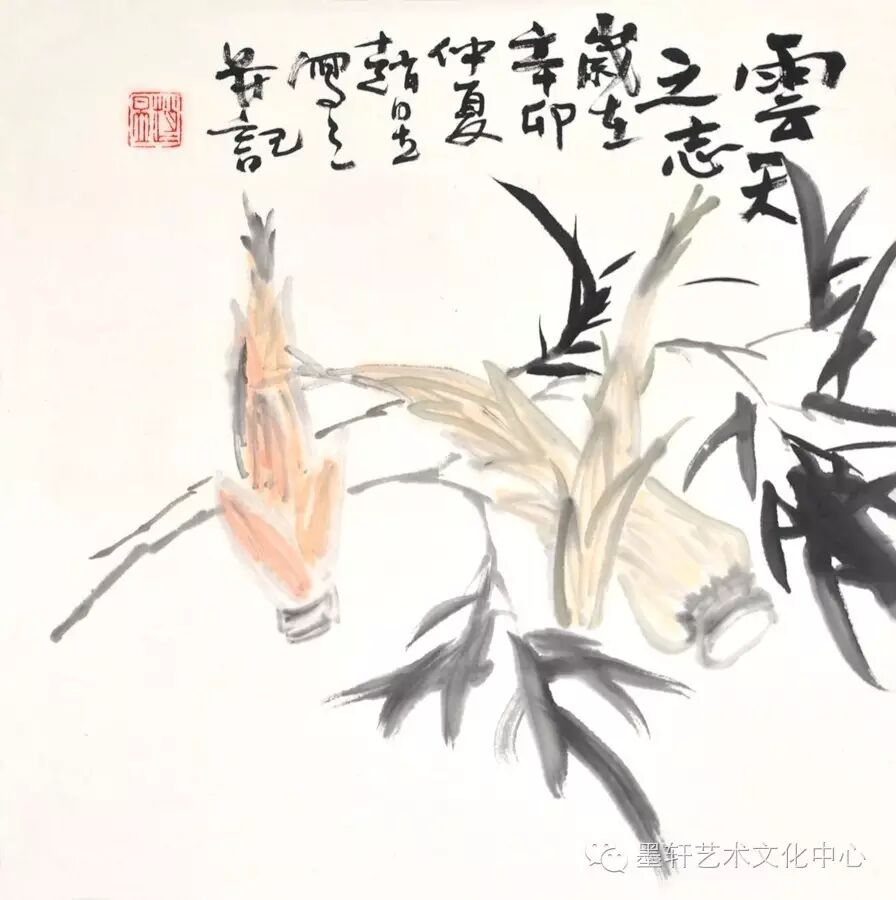 雲天
之志
歲在
辛卯
仲夏
趙
寫之
并記
墨轩艺术文化中心